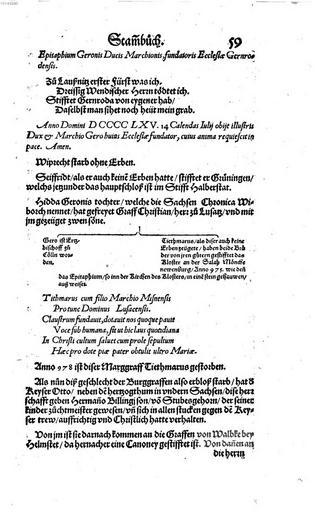 Stam̃bůch. 59
Epitaphium Geronis Ducis Marchionis, fundatoris Ecclesiæ Gernro-
densis.
Zů Laußnitz erster Fürst was ich.
Dreissig Wendischer Herrn tödtet ich.
Stifftet Gernroda von eygener hab/
Daselbst man sihet noch heüt mein grab.
Anno Domini DCCCCLXV. 14 Calendas Iulij obijt illustris
Dux & Marchio Gero huius Ecclesiæ fundator, cuius anima requiescit in
pace. Amen.
Wiprecht starb ohne Erben.
Seiffridt/als er auch keinẽ Erben hatte/ stifftet er Grüningen/
welchs jetzunder das hauptschloß ist im Stifft Halberstat.
Hidda Geronis tochter/ welche die Sachsen Chronica Wi-
borch nennet/ hat gefreyet Graff Christian/ herr zů Lusatz/ vnd mit
jm gezeüget zwen söne.
Gero ist Ertz-
bischoff zů
Cöln wor-
den.
Tiethmarus/ als diser auch keine
Erben zeügete/ haben beide Brü
der von jren gütern gestifftet das
Kloster an der Salah Mönche
newenburg/ Anno 975. wie deñ
das Epitaphium/ so inn der Kirchen des Klosters/ in eine stein gehauwen/
auß weiset.
Tithmarus cum filio Marchio Misnensis
Pro tunc Dominus Lusacensis.
Claustrum fundaut, dotauit nos quoque pauit
Voce sub humana, sit ut hic laus quotidiana
In Christi cultum saluet cum prole sepultum
Hæc pro dote piæ pater obtulit ultro Mariæ.
Anno 978 ist diser Marggraff Tiethmarus gestorben.
Als nůn diß geschlecht der Burggraffen also erbloß starb/ hat ð
Keyser Otto/ neben dẽ hertzogthum in vndern Sachsen/ dise herr
schafft geben Hermaño Billingsson/ võ Stubeßhorn/ der seiner
kinder zůchtmeister gewesen/ vñ sich in allen stucken gegen dẽ Key-
ser trew/ auffrichtig vnd Christlich hatte verhalten.
Von jm ist sie darnach kommen an die Graffen von Walbke bey
Helmstet/ da hernacher eine Canoney gestifftet ist. Von dañen an
die herrn